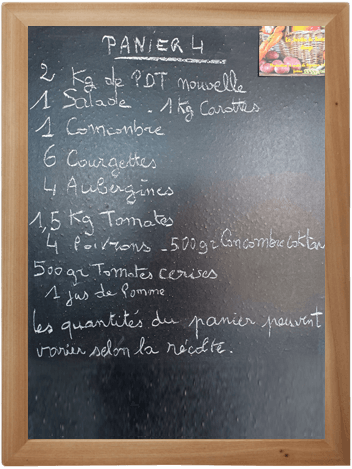 PANIER 4
2 Kg de PDT nouvelle
1 Salade - 1 Kg Carottes
1 Concombre
6 Courgettes
4 Aubergines
1,5 Kg Tomates
4 Poivrons - 500 gr Concombre coktail
500 gr Tomates cerises
1 jus de Pomme
les quantités du panier peuvent
varier selon la récolte.